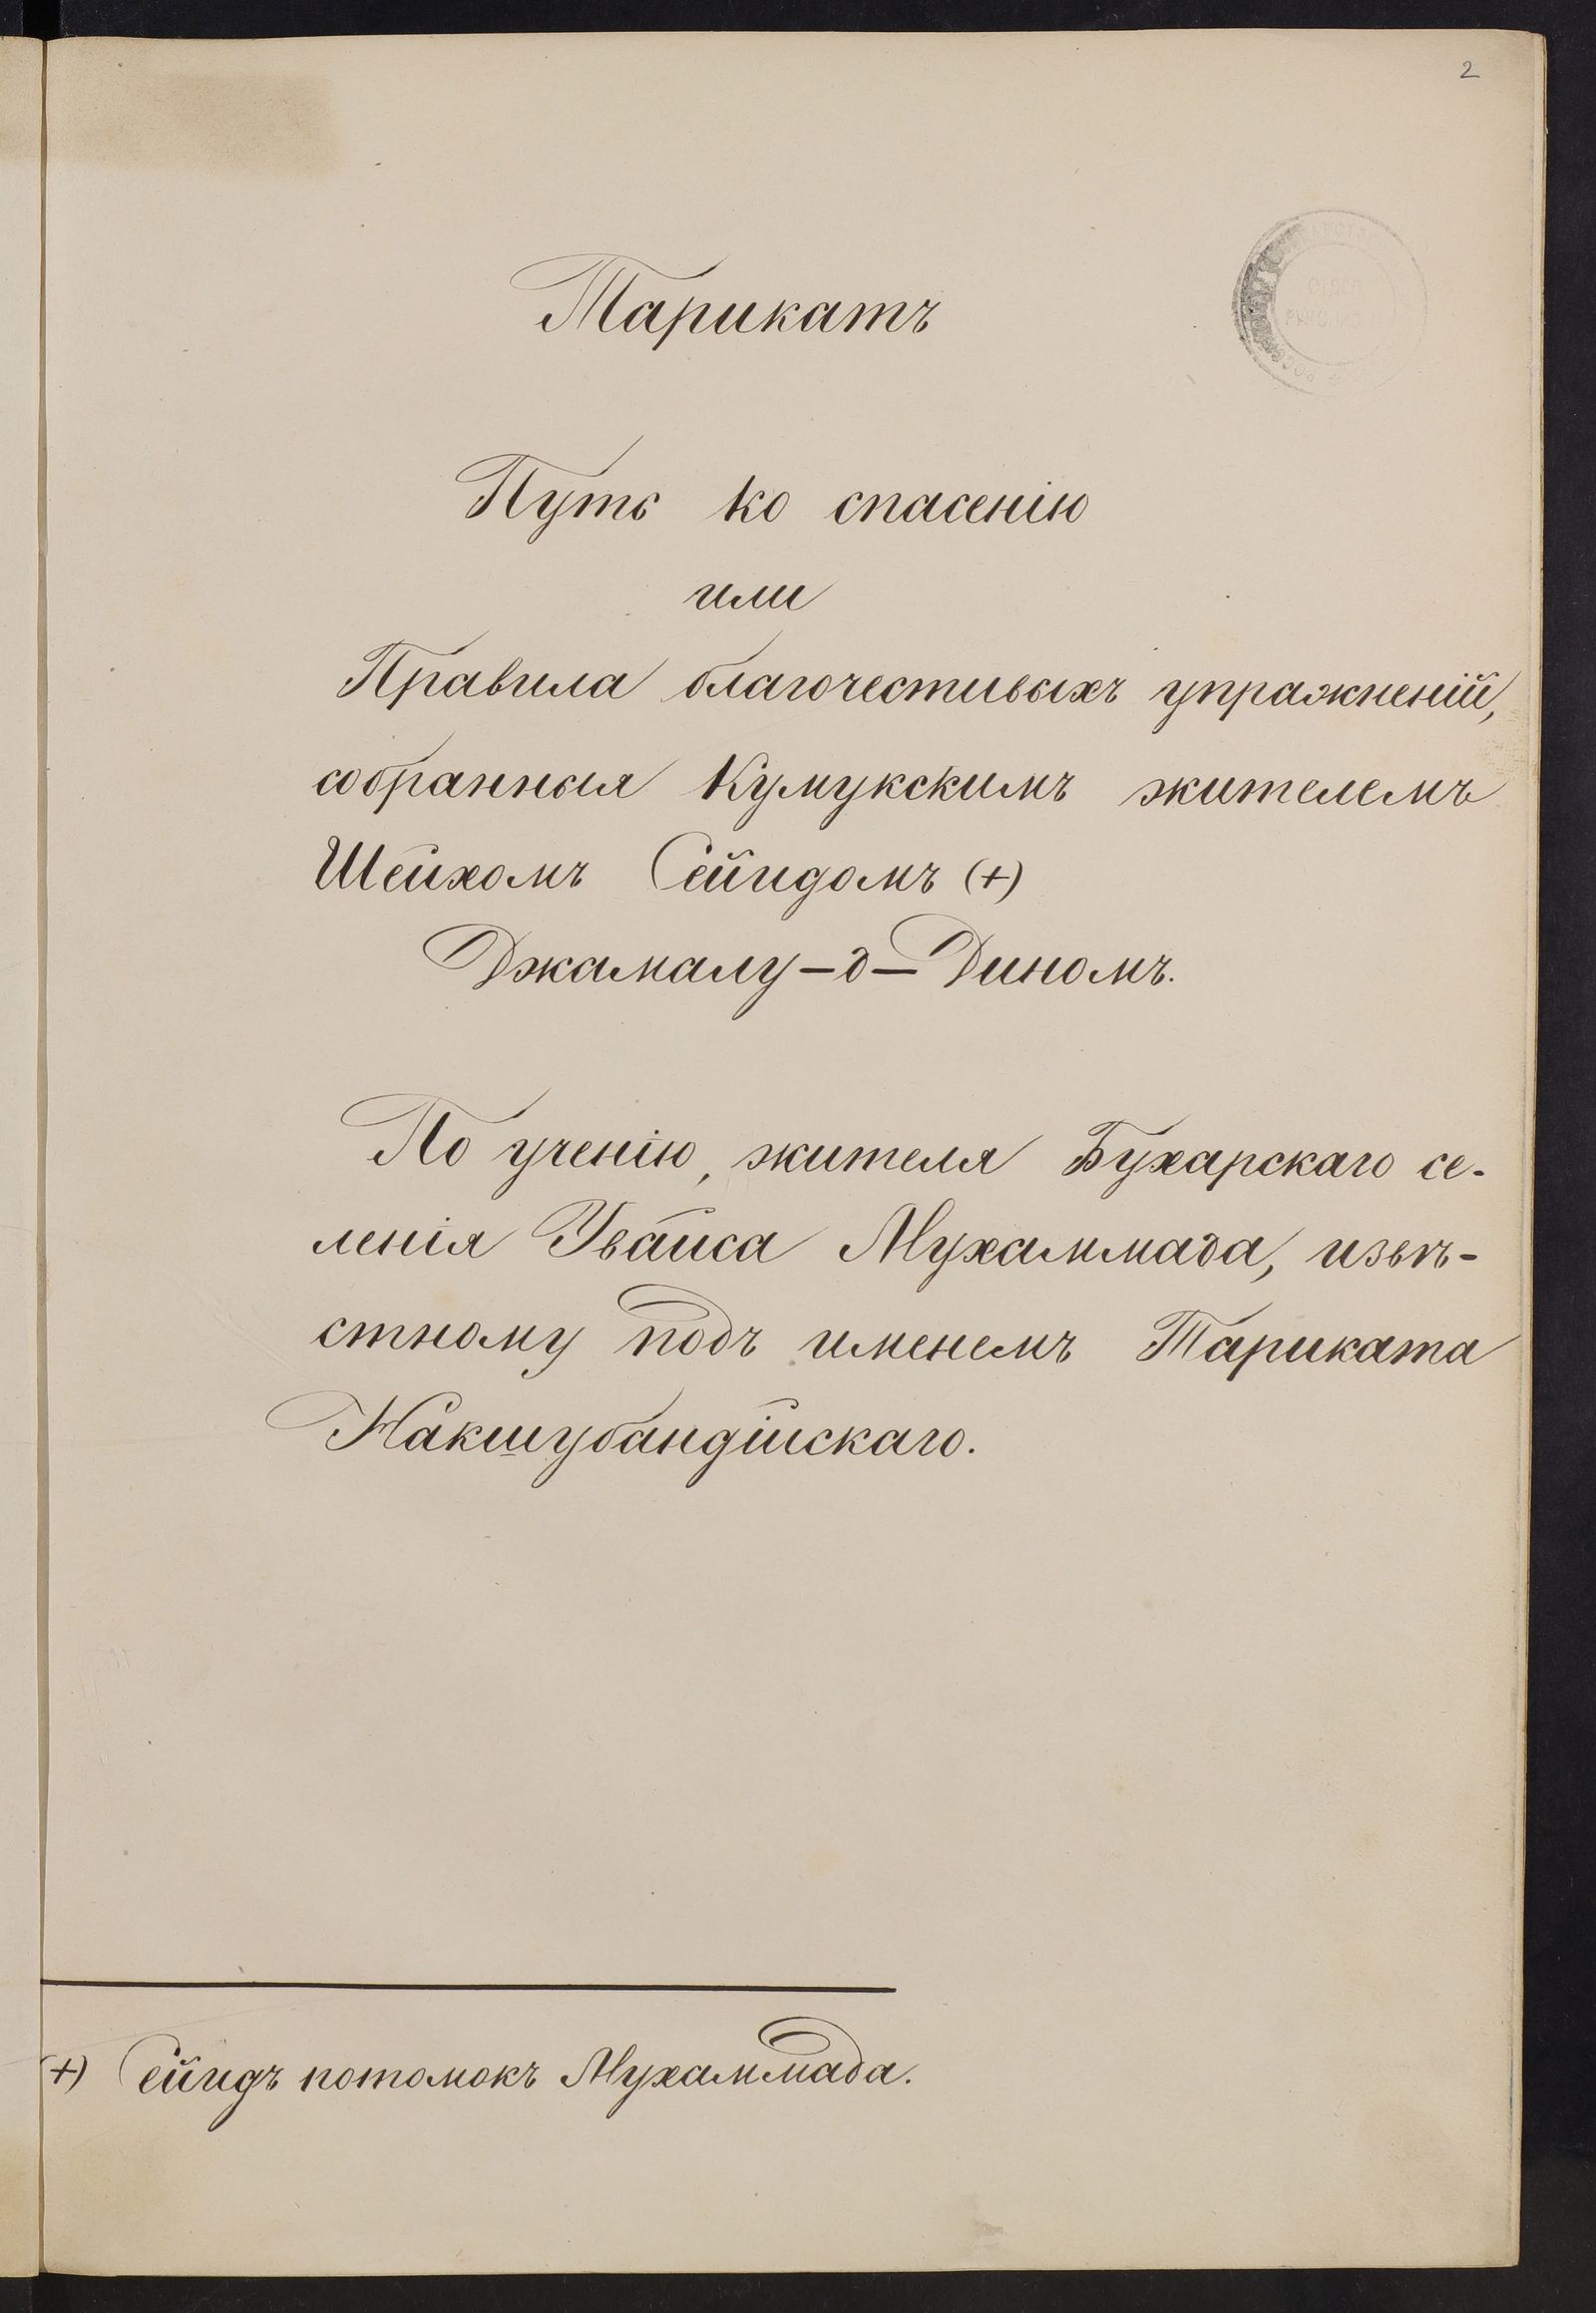 2
Тарикатъ
Путь ко спасенію
или
Правила благочестивыхъ упражненій,
собранныя Кумукскимъ жителемъ
Шейхомъ Сейидомъ (+)
Джамалу-д-Диномъ.
По ученію, жителя Бухарскаго се-
ленія Увайса Мухаммада, извѣ-
стному подъ именемъ Тариката
Накшубандійскаго.
(+) Сейидъ потомокъ Мухаммада.